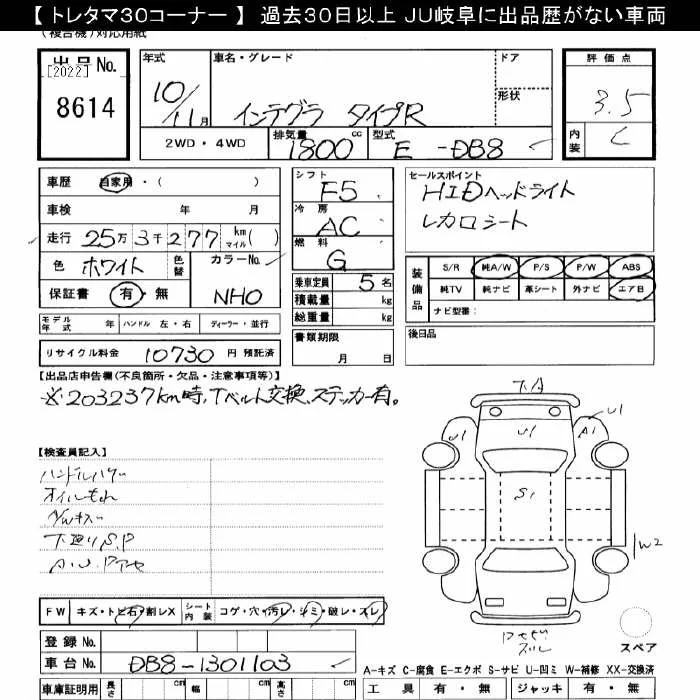 【 トレタマ30コーナー 】 過去30日以上 JU岐阜に出品歴がない車両
(複合機)対応用紙
出品No. [2022] 8614
年式 10/11月
車名・グレード インテグラ タイプR
ドア
形状
2WD・4WD
排気量 1800 cc
型式 E-DB8
評価点 3.5
内装 C
車歴 自家用・( )
車検 年 月
走行 25万3千277 km マイル( )
色 ホワイト 色替
カラーNo. NHO
保証書 有・無
シフト F5
冷房 AC
燃料 G
乗車定員 5名
積載量 kg
総重量 kg
セールスポイント
HIDヘッドライト
レカロシート
装備品
S/R 純A/W P/S P/W ABS
純TV 純ナビ 革シート 外ナビ エアB
ナビ型番:
モデル年式 年 ハンドル 左・右 ディーラー・並行
書類期限 月 日
後日品
リサイクル料金 10730 円 預託済
【出品店申告欄(不良箇所・欠品・注意事項等)】
※203237km時,Tベルト交換、ステッカー有。
【検査員記入】
オイルもれ
下廻りS.P
U1 U1 A1 U1
S1
W2
スペア
FW キズ・トビ石・割レX
シート内装 コゲ・穴・汚レ・シミ・破レ・スレ
登録No.
車台No. DB8-1301103
車庫証明用 長さ cm 幅 cm 高さ cm
A-キズ C-腐食 E-エクボ S-サビ U-凹ミ W-補修 XX-交換済
工具 有・無 ジャッキ 有・無